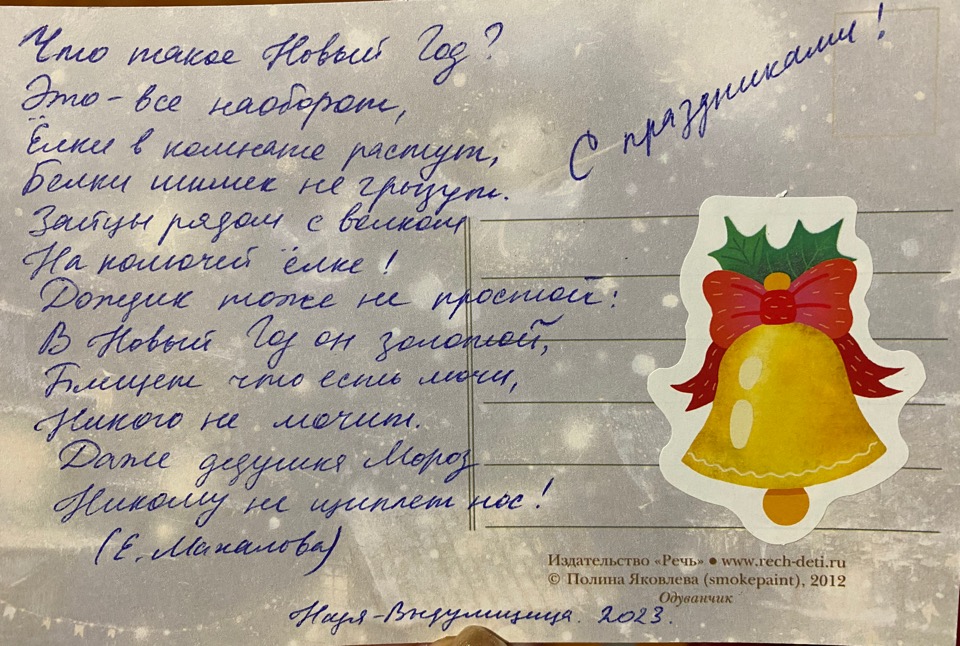 Что такое Новый Год?
Это - все наоборот,
Ёлки в комнате растут,
Белки шишек не грызут.
Зайцы рядом с волком
На колючей ёлке!
Дождик тоже не простой:
В Новый Год он золотой,
Блищет что есть мочи,
Никого не мочит.
Даже дедушка Мороз
Никому не щиплет нос!
(Е. Михалова)
С праздниками!
Издательство «Речь» • www.rech-deti.ru
© Полина Яковлева (smokepaint), 2012
Одуванчик
Надя-Выдумщица. 2023.